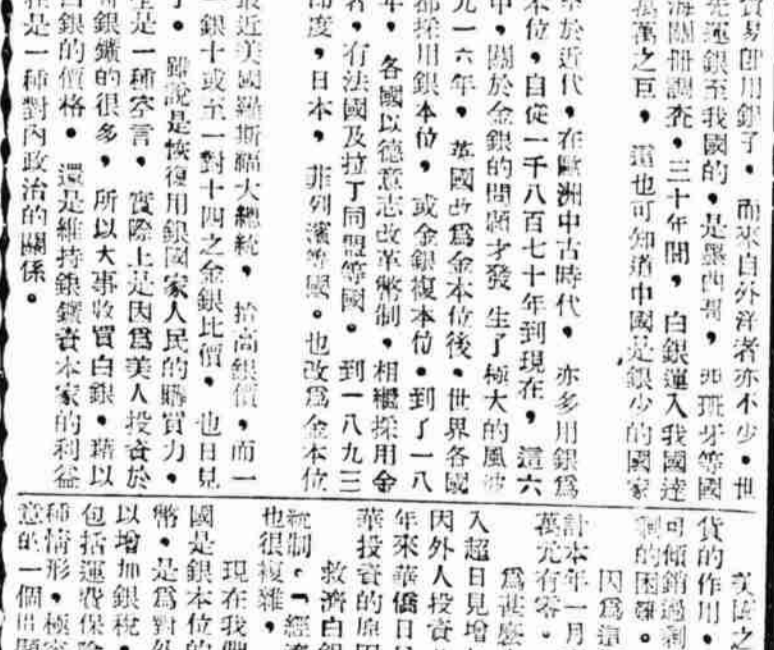 貿易卽用銀子。而來自外洋者亦不少。世
先運銀至我國的，是墨西哥，西班牙等國
海關冊調查，三十年間，白銀運入我國達
萬萬之巨，這也可知道中國是銀少的國家
至於近代，在歐洲中古時代，亦多用銀爲
本位，自從一千八百七十年到現在，這六
中，關於金銀的問題才發生了極大的風波
元一六年，英國改爲金本位後，世界各國
都採用銀本位，或金銀複本位。到了一八
年，各國以德意志改革幣制，相繼採用金
者，有法國及拉丁同盟等國。到一八九三
印度，日本，菲列濱等國。也改爲金本位
最近美國羅斯福大總統，抬高銀價，而一
銀十或至一對十四之金銀比價，也日見
了。雖說是恢復用銀國家人民的購買力，
是一種空言，實際上是因爲美人投資於
銀鑛的很多，所以大事收買白銀，藉以
白銀的價格。還是維持銀鑛資本家的利益
是一種對內政治的關係。
美國之
貨的作用，
可傾銷過剩
剩的困難。
因爲這
計本年一月
萬元有零。
爲甚麼
入超日見增
因外人投資
年來華僑日
華投資的原因
救濟白銀
統制。「經濟
也很複雜，
現在我們
國是銀本位的
幣，是爲對外
以增加銀稅，
包括運費保險
種情形，極容
意的一個問題